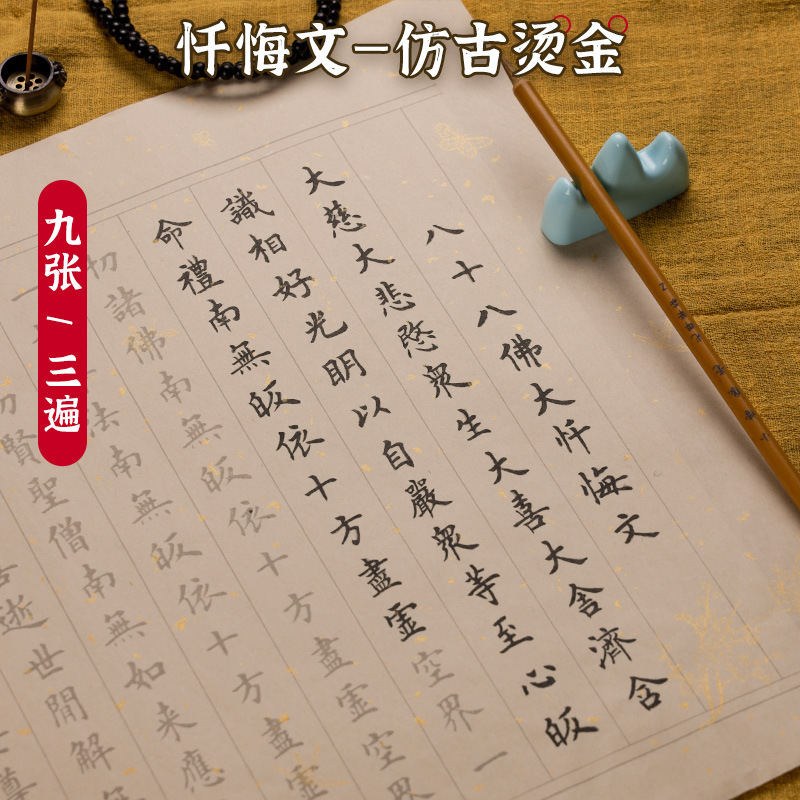 忏悔文–仿古烫金
九张/三遍
八十八佛大忏悔文
大慈大悲愍衆生大喜大舍濟含
識相好光明以自嚴衆等至心皈
命禮南無皈依十方盡虛空界一
切諸佛南無皈依十方盡虛空界
一法南無皈依十方盡虛
切賢聖僧南無如來應
逝世間解